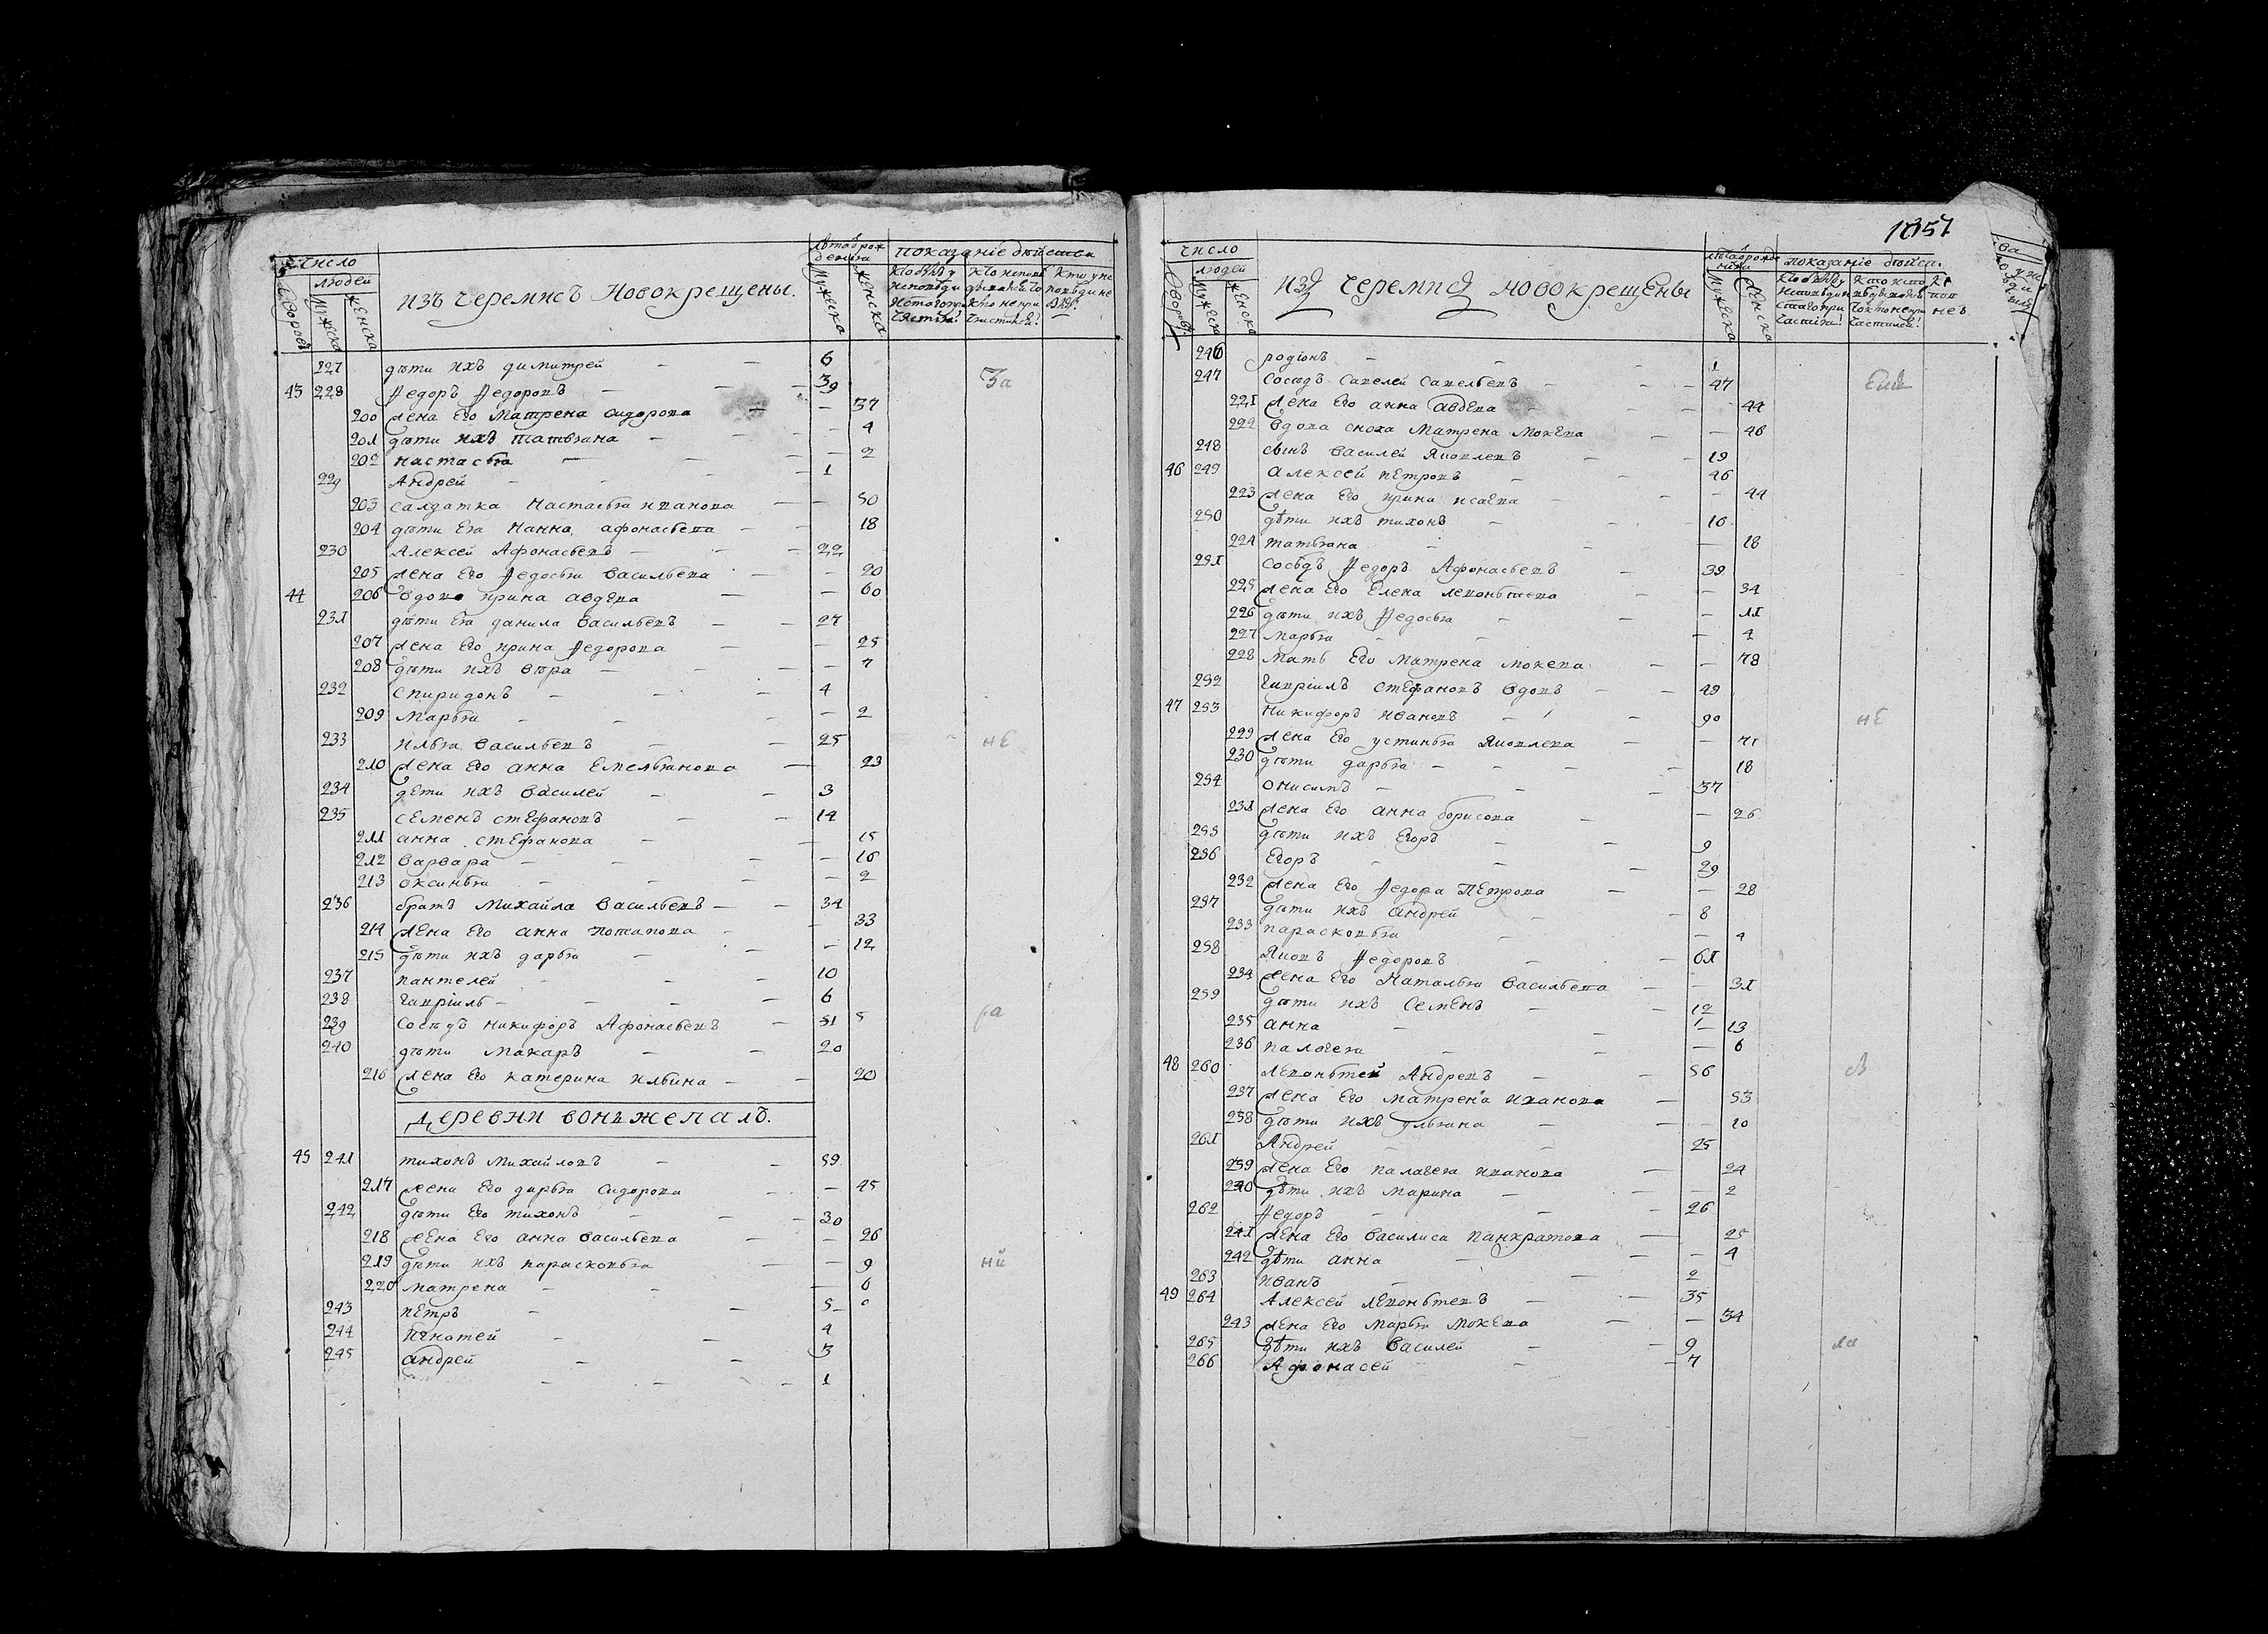 число
людей
дворовъ
мужеска
женска
изъ черемисъ Новокрещены.
лѣта от рож
дения
мужеска
женска
показаніе дѣйства
227 дѣти ихъ димитрей — — 6
43 228 Ѳедоръ Ѳедоровъ — — — 39
За
200 жена Его Матрена сидорова — — 37
201 дѣти ихъ татьяна — — — 4
202 настасья — — — 2
229 Андрей — — — 1
203 салдатка Настасья иванова — — 50
204 дѣти Ея Нанна афонасьева — — 18
230 Алексей Афонасьевъ — — — 22
205 жена Его Ѳедосья васильева — — 20
44 206 вдова ирина авдева — — 60
231 дѣти Ея данила васильевъ — — 27
207 жена Его ирина Ѳедорова — 25
208 дѣти ихъ вѣра — — — 7
232 спиридонъ — — — 4
209 Марья — — — — 2
233 илья васильевъ — — 25
не
210 жена Его анна Емельянова — 23
234 дѣти ихъ василей — — 3
235 семенъ стефановъ — — 14
211 анна стефанова — — 15
212 варвара — — — 16
213 оксинья — — — — 2
236 братъ Михайла васильевъ — — 34
214 жена Его анна потапова — — 33
215 дѣти ихъ дарья — — — 12
237 пантелей — — — 10
238 гавріилъ — — — — 6
239 сосѣдъ никифоръ Афонасьевъ — 51
240 дѣти макаръ — — 20
216 жена Его катерина ильина — — 20
деревни вонъжепалъ.
45 241 тихонъ михайловъ — — 59
217 жена Его дарья сидорова — — 45
242 дѣти Его тихонъ — — — 30
218 жена Его анна васильева — — 26
219 дѣти ихъ парасковья — — 9
ни
220 матрена — — — 6
243 петръ — — 5
244 Игнатей — — 4
245 андрей — — 3
— — — 1
1057
число
людей
дворовъ
мужеска
женска
изъ черемисъ новокрещены
мужеска
женска
показаніе дѣйс.
246 родіонъ — — 1
247 сосѣдъ савелей савельевъ — — — 47
221 жена Его анна авдева — — — 44
222 вдова сноха матрена мокева — — 46
248 сынъ василей Яковлевъ — — 19
46 249 алексей петровъ — — 46
223 жена Его ирина исаева — — — 44
250 дѣти ихъ тихонъ — — — 16
224 татьяна — — — 18
251 сосѣдъ Ѳедоръ Афонасьевъ — 39
225 жена Его Елена левонтьева — — 34
226 дѣти ихъ Ѳедосья — — — 11
227 марья — — — 4
228 мать Его матрена мокева — — 78
252 гавріилъ стефановъ вдовъ — — 49
47 253 никифоръ ивановъ — — 90
не
229 жена Его устинья Яковлева — — 71
230 дѣти дарья — — — — 18
254 онисимъ — — — 37
231 жена Его анна борисова — — 26
255 дѣти ихъ Егоръ — — 9
256 Егоръ — — — 29
232 жена Его Ѳедора петрова — — 28
257 дѣти ихъ андрей — — 8
233 парасковья — — 4
258 Яковъ Ѳедоровъ — — 61
234 жена Его Наталья васильева — — 31
259 дѣти ихъ семенъ — — 12
235 анна — — — 13
236 палагея — — — 6
48 260 левонтей Андревъ — — 56
237 жена Его матрена иванова — 53
238 дѣти ихъ ульяна — — — 10
261 Андрей — — 25
239 жена Его палагея иванова — 24
240 дѣти ихъ марина — — — 2
262 Ѳедоръ — — — 26
241 жена Его василиса панкратова — 25
242 дѣти анна — — — 4
263 иванъ — — 2
49 264 Алексей левонтьевъ — — 35
243 жена Его марья мокева — — 34
265 дѣти ихъ василей — — 9
266 Афонасей — — 7